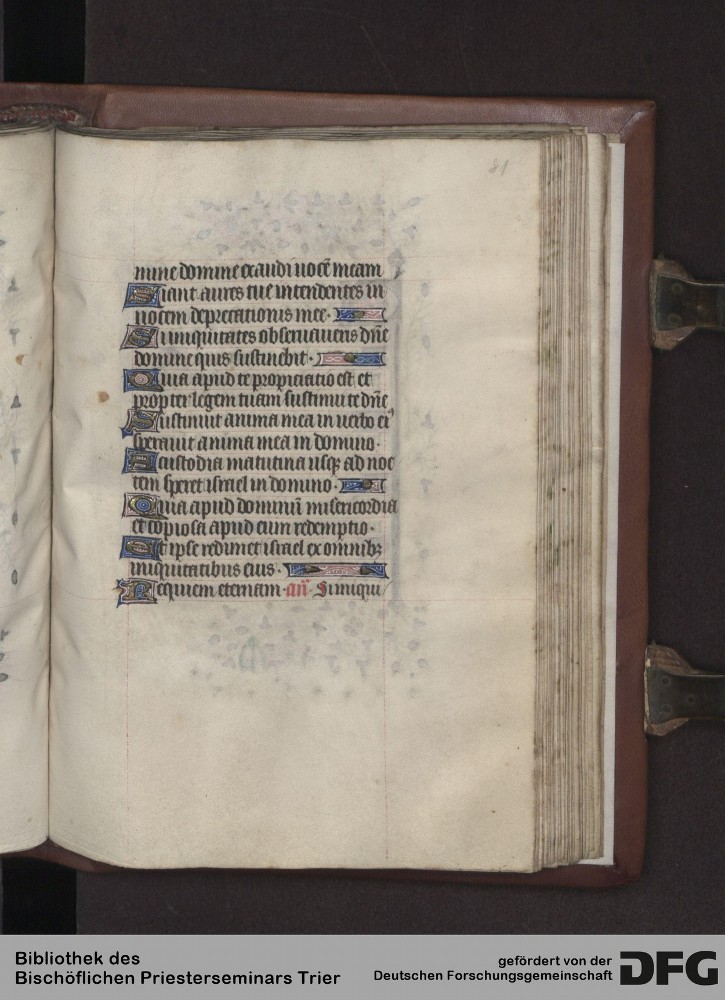 81
mine domine exaudi uocē meam
Fiant aures tue intendentes in
uocem deprecationis mee·
Si iniquitates obseruaueris dn̄e
domine quis sustinebit·
Quia apud te propiciatio est et
propter legem tuam sustinui te dn̄e
Sustinuit anima mea in uerbo eiꝰ
sperauit anima mea in domino·
A custodia matutina usqꝫ ad noc
tem speret israel in domino·
Quia apud dominū misericordia
et copiosa apud eum redemptio·
Et ipse redimet israel ex omnibꝫ
iniquitatibus eius·
Requiem eternam· an̄· Si iniqui
Bibliothek des
Bischöflichen Priesterseminars Trier
gefördert von der
Deutschen Forschungsgemeinschaft
DFG